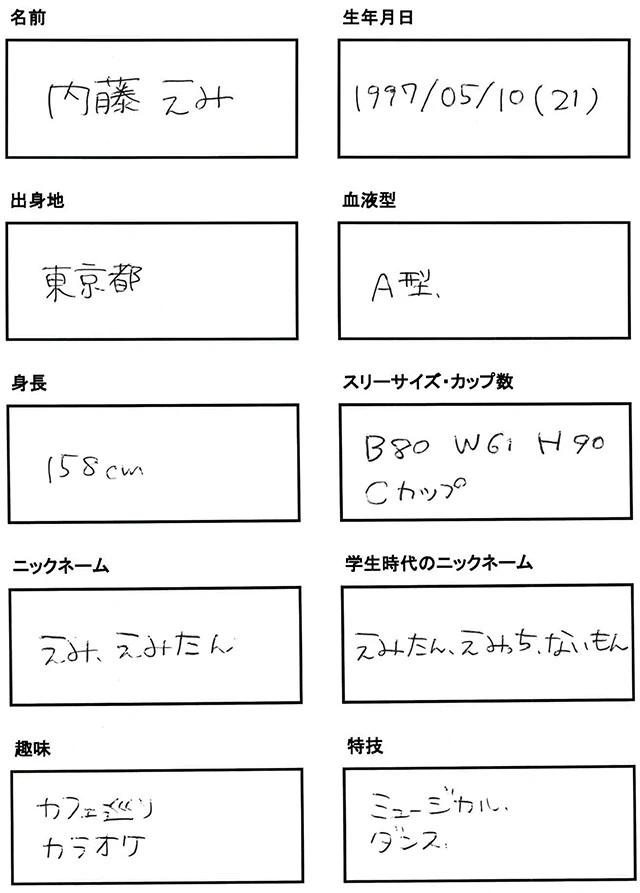 名前
内藤 えみ
生年月日
1997/05/10(21)
出身地
東京都
血液型
A型、
身長
158cm
スリーサイズ・カップ数
B80 W61 H90
Cカップ
ニックネーム
えみ、えみたん
学生時代のニックネーム
えみたん、えみっち、ないもん
趣味
カフェ巡り
カラオケ
特技
ミュージカル、
ダンス、